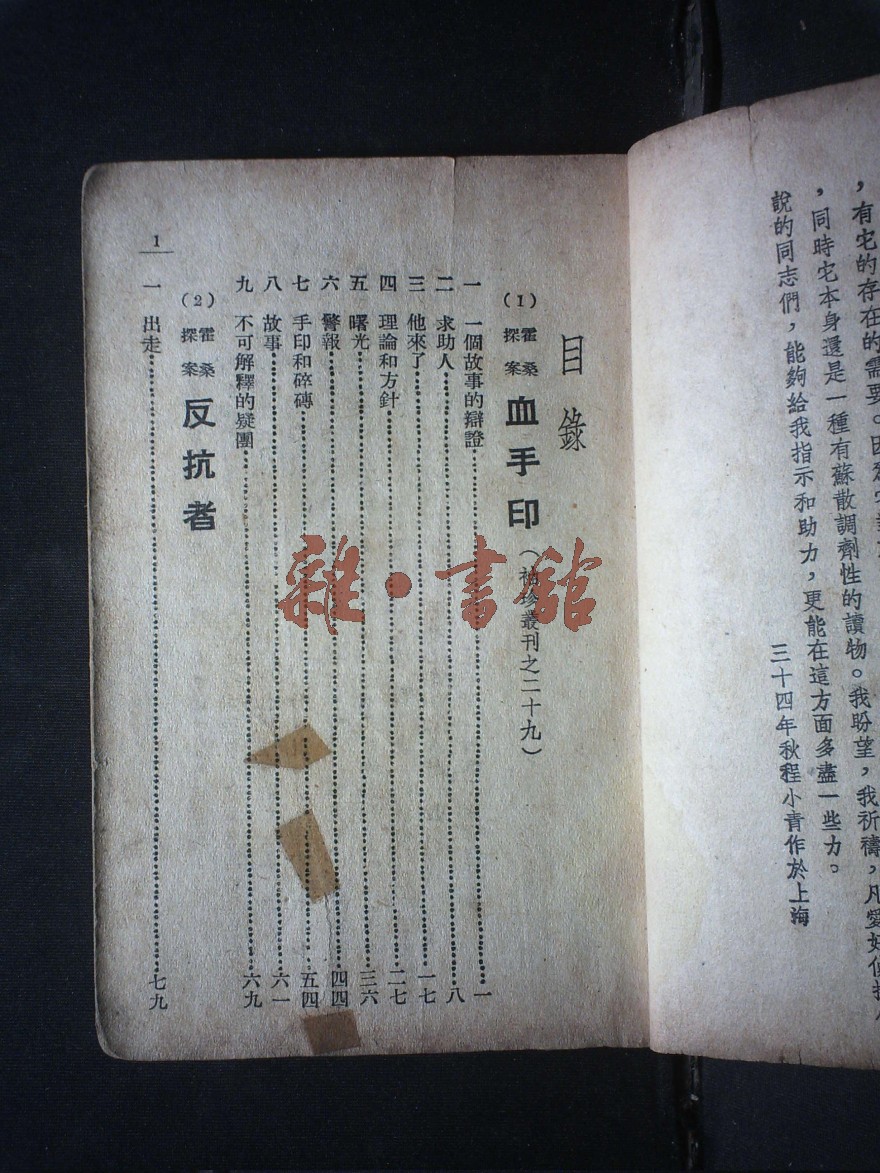 ，有它的存在的需要。因爲它
，同時它本身還是一種有蘇散調劑性的讀物。我盼望，我祈禱，凡愛好偵探小
說的同志們，能夠給我指示和助力，更能在這方面多盡一些力。
三十四年秋程小青作於上海
目錄
(1) 霍桑探案 血手印（袖珍叢刊之二十九）
一 一個故事的辯證 一
二 求助人 八
三 他來了 一七
四 理論和方針 二七
五 曙光 三六
六 警報 四四
七 手印和碎磚 五四
八 故事 六一
九 不可解釋的疑團 六九
(2) 霍桑探案 反抗者
一 出走 七九
1
雜·書館